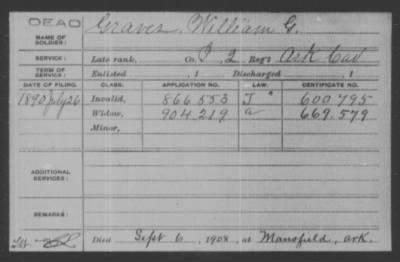 DEAD
NAME OF SOLDIER: Graves, William G.
SERVICE: Late rank, Co. I, 2 Reg't Ark Cav
TERM OF SERVICE: Enlisted , 1 Discharged , 1
DATE OF FILING. CLASS. APPLICATION NO. LAW. CERTIFICATE NO.
1890 July 26 Invalid, 866.553 J 600.795
Widow, 904.219 a 669.579
Minor,
ADDITIONAL SERVICES:
REMARKS:
Died Sept 6, 1908, at Mansfield, Ark.